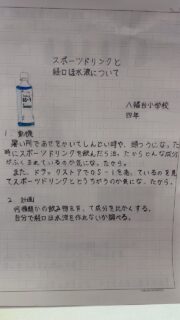 スポーツドリンクと
経口ほ水液について
八幡台小学校
四年
1. 動機
暑い所であせをかいてしんどい時や、頭つうになった
時にスポーツドリンクを飲んだら治ったからどんな成分
がふくまれているのか気になったから。
また、ドラッグストアでOS-1を売っているのを見
てスポーツドリンクとどうちがうのか気になったから。
2. 計画
何種類かの飲み物を
て成分を比かくする。
自分で経口ほ水液を作れないか調べる。